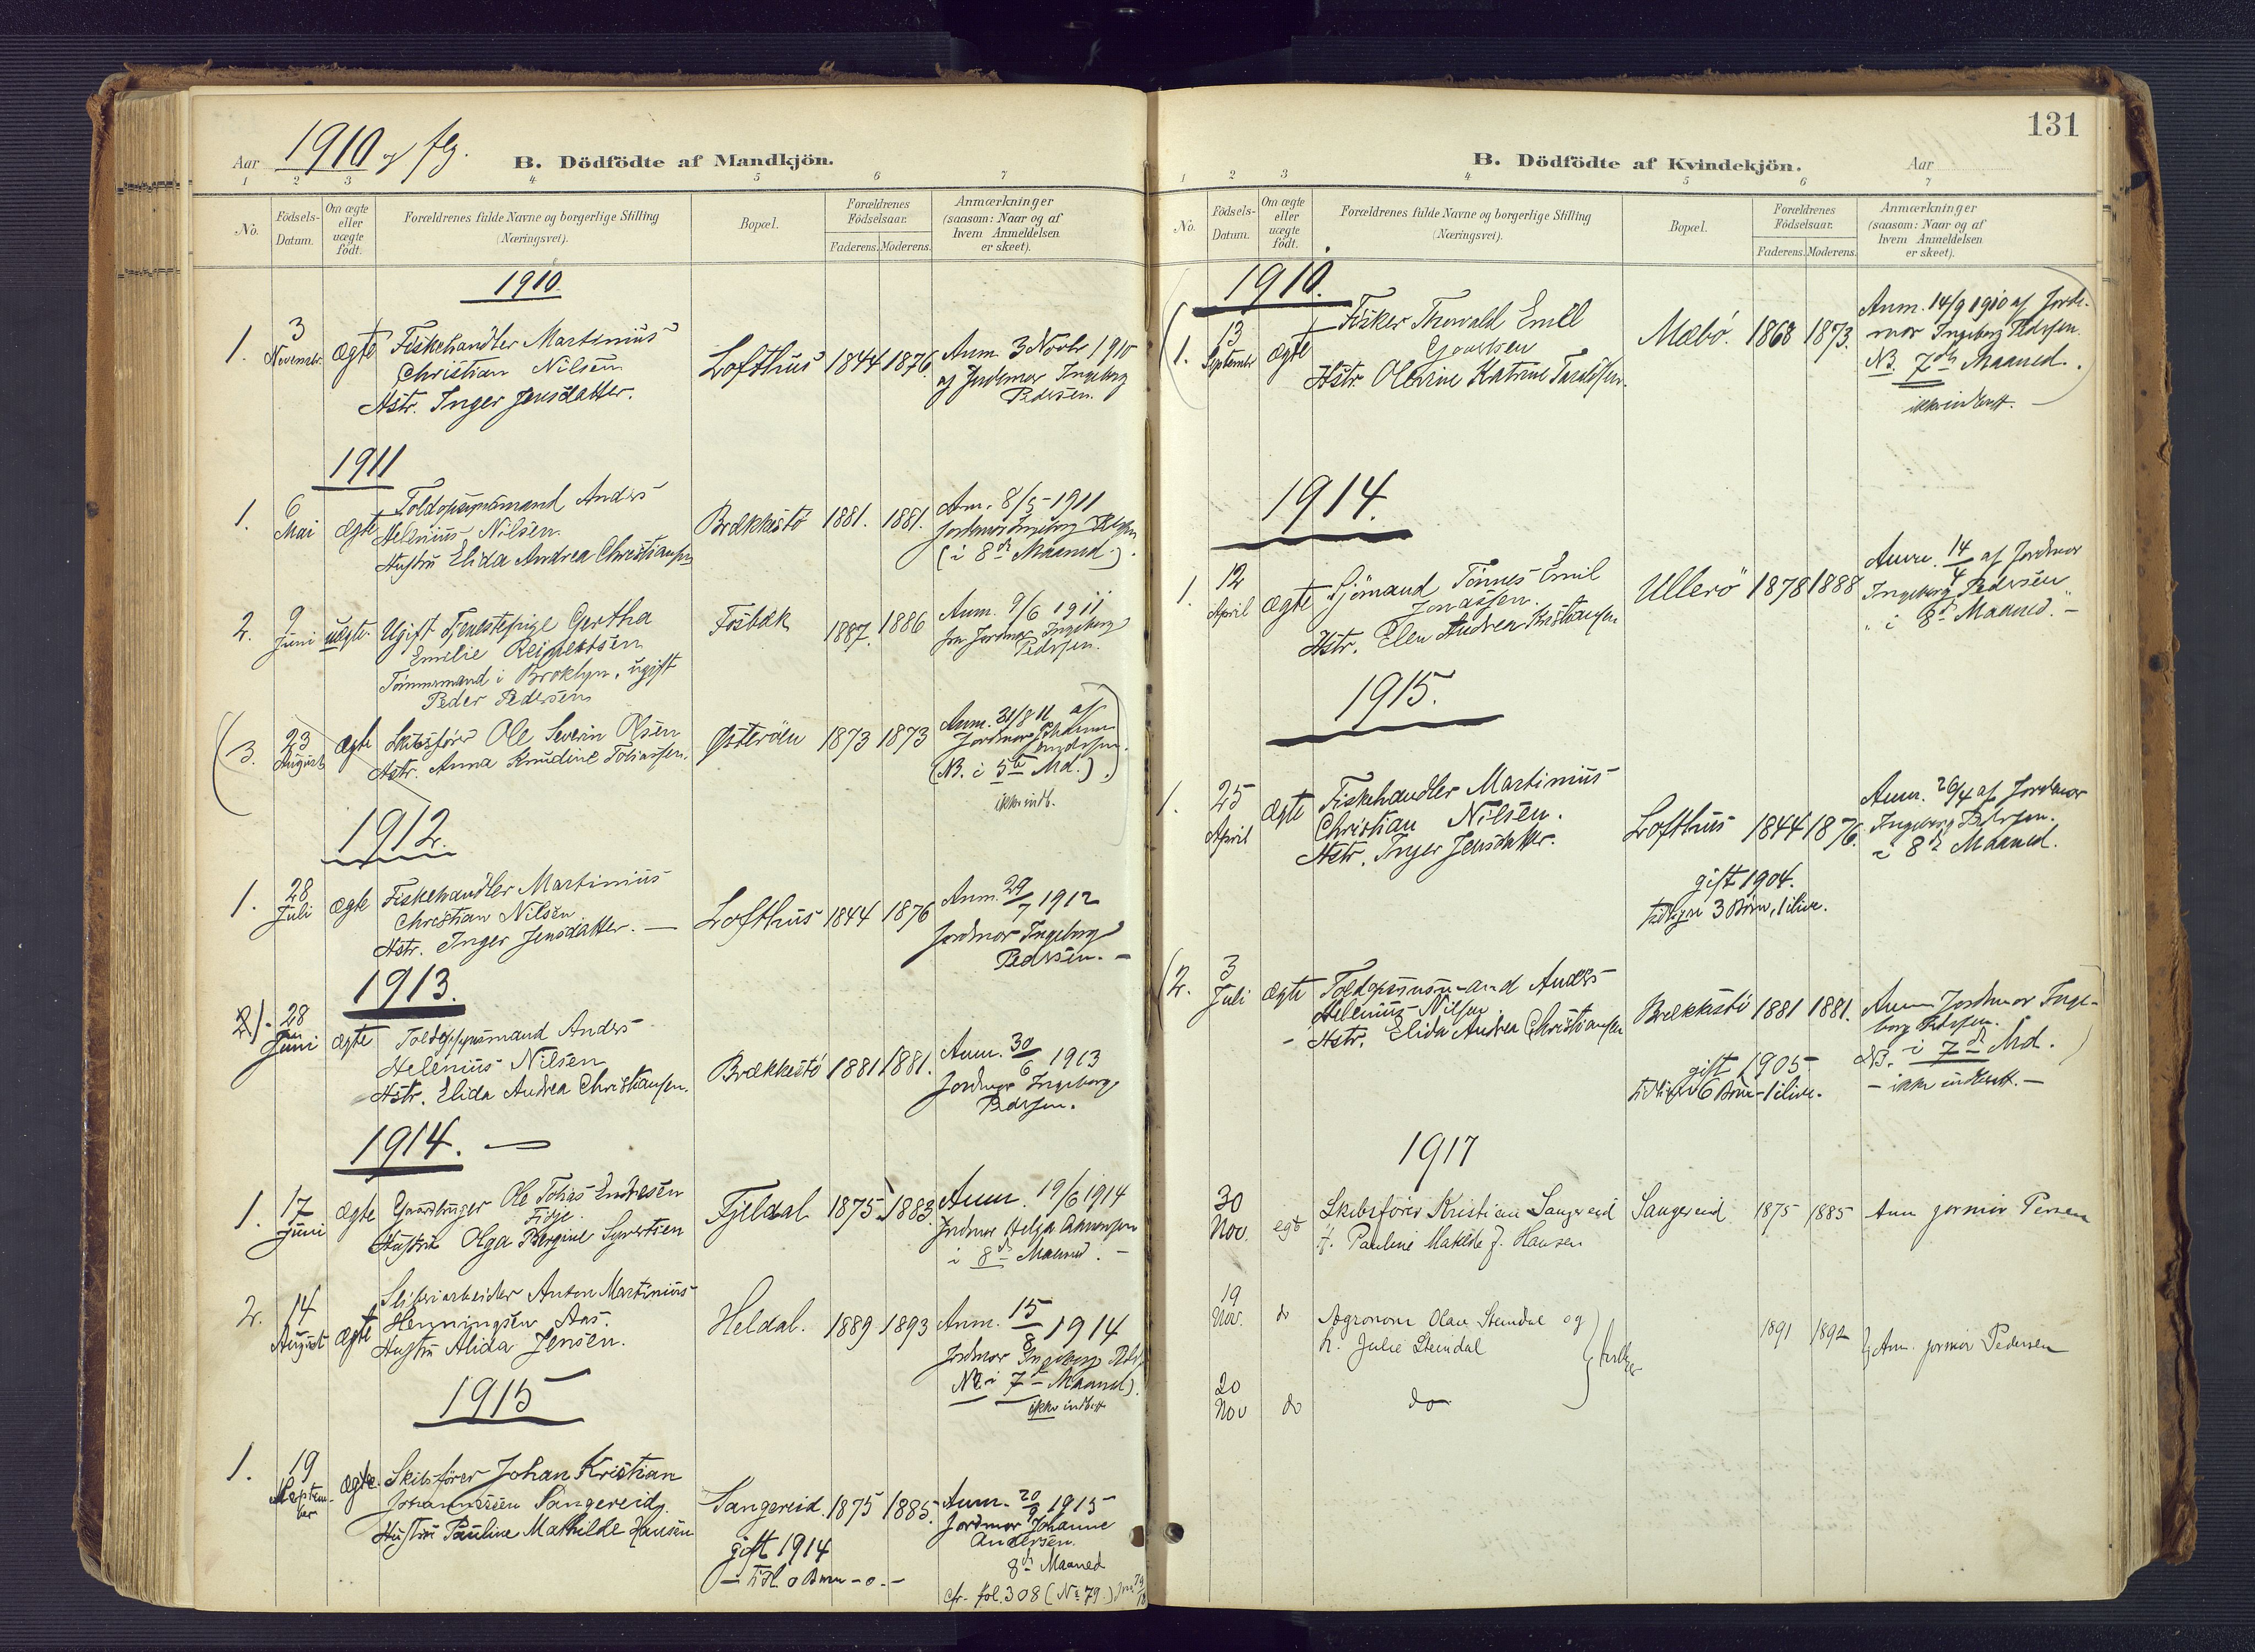 Aar 1910 og flg.
B. Dödfödte af Mandkjön.
1 2 3 4 5 6 7
No.
Födsels-Datum.
Om ægte eller uægte födt.
Forældrenes fulde Navne og borgerlige Stilling (Næringsvei).
Bopæl.
Forældrenes Födselsaar.
Faderens. Moderens.
Anmærkninger (saasom: Naar og af hvem Anmeldelsen er skeet).
1910
1. 3 Novembr. ægte Fiskehandler Martinius
Christian Nilsen
Hstr. Inger Jensdatter.
Lofthus 1844 1876.
Anm. 3 Novbr 1910
af Jordmor Ingeborg
Pedersen.
1911
1. 6 Mai ægte Toldopsynsmand Anders
Helenius Nilsen.
Hustru Elida Andrea Christiansen
Brækkestö 1881. 1881.
Anm. 8/5-1911
Jordmor Ingeborg
(i 8de Maaned).
2. 9 Juni uægte. Ugift Tjenestepige Gertha
Emilie
Tömmermand i Broklyn, ugift
Peder Pedersen
Fosbæk 1887. 1886
Anm. 9/6 1911
fra Jordmor Ingeborg
Pedersen.
(3. 23 August ægte Skibsförer Ole Severin Olsen
Hstr. Anna Knudine Tobiassen.
Österöen 1873 1873
Anm. 31/8 11 af
Jordmor Johanne
Andersen.
(NB. i 5te Md.).)
ikke indb.
1912.
1. 28 Juli ægte Fiskehandler Martinius
Christian Nilsen
Hstr. Inger Jensdatter. —
Lofthus 1844 1876
Anm. 29/7 1912
Jordmor Ingeborg
Pedersen. —
1913.
28 Juni ægte Toldopsynsmand Anders
Helenius Nilsen
Hstr. Elida Andrea Christiansen.
Brækkestö 1881 1881.
Anm. 30/6 1913
Jordmor Ingeborg
Pedersen.
1914. —
1. 17 Juni ægte Gaardbruger Ole Tobias Endresen
Fidje.
Hustru Olga Bergine Syvertsen
Fjeldal 1875 1883.
Anm. 19/6 1914
Jordmor Helga
i 8de Maaned. —
2. 14 August ægte Sliperiarbeider Anton Martinius
Henningsen Aas.
Hustru Alida Jensen.
Heldal. 1889 1893
Anm. 15/8 1914
Jordmor Ingeborg
NB. i 7de Maaned).
ikke indbrtt
1915
1. 19 September ægte. Skibsförer Johan Kristian
Johannessen Sangereid.
Hustru Pauline Mathilde Hansen
Sangereid. 1875 1885.
gift 1914
— Tidl. 0 Barn - 0. —
Anm. 20/9 1915
Jordmor Johanne
Andersen.
8de Maaned
cfr. fol. 308 (No 79.)
131
B. Dödfödte af Kvindekjön.
Aar
1 2 3 4 5 6 7
No.
Födsels-Datum.
Om ægte eller uægte födt.
Forældrenes fulde Navne og borgerlige Stilling (Næringsvei).
Bopæl.
Forældrenes Födselsaar.
Faderens. Moderens.
Anmærkninger (saasom: Naar og af hvem Anmeldelsen er skeet).
1910.
(1. 13 September ægte Fisker Thorvald Emil
Hstr. Olevine Katrine
Mæbö. 1868 1873.
Anm. 14/9 1910 af Jorde-
mor Ingeborg Pedersen.
NB. 7de Maaned.)
ikke indbrtt. —
1914.
1. 12 April ægte Sjömand Tönnes Emil
Jonassen.
Hstr. Elen Andrea Kristiansen
Ulleröʼ 1878 1888
Anm. 14/4 af Jordmor
Ingeborg Pedersen
i 8de Maaned. —
1915.
1. 25 April ægte Fiskehandler Martinius
Christian Nilsen.
Hstr. Inger Jensdatter.
Lofthus 1844 1876.
gift 1904.
tidligere 3 Börn, 1 ilive.
Anm. 26/4 af Jordmor
Ingeborg Pedersen.
i 8de Maaned.
(2. 3 Juli ægte Toldopsynsmand Anders
Helenius Nilsen.
- Hstr. Elida Andrea Christiansen
Brækkestö 1881 1881.
gift 1905
tidligere 6 Börn - 1 ilive.
Anm Jordmor Inge-
borg Pedersen.
NB. i 7de Md.)
— ikke indbrtt. —
1917
30 Nov. egt Skibsförer Kristian Sangereid
h. Pauline Matilde f. Hansen
Sangereid 1875 1885
Anm jormor Persen
19 Nov. do Agronom Olav Steindal og
h. Julie Steindal
1891 1892
Anm. jormor Pedersen
20 Nov do do